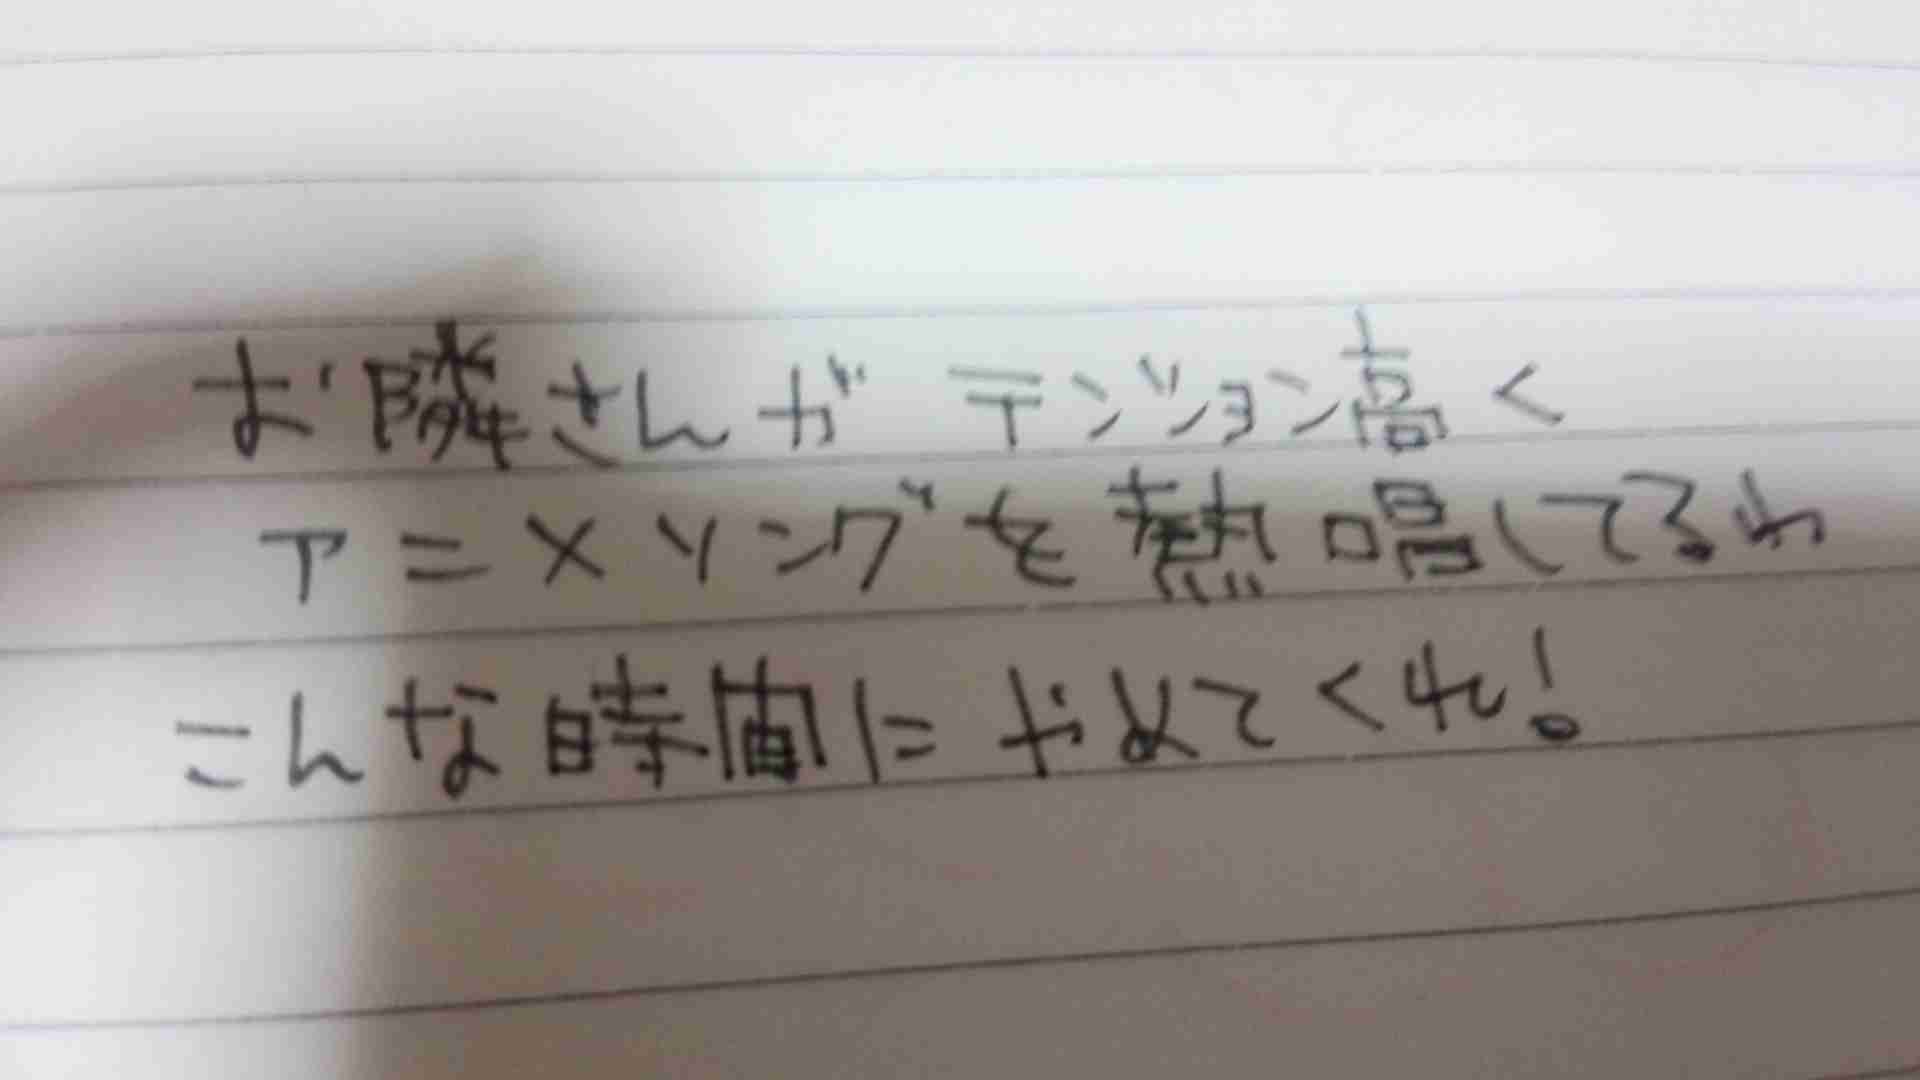 お隣さんがテンション高く
アニメソングを熱唱してるわ
こんな時間にやめてくれ!